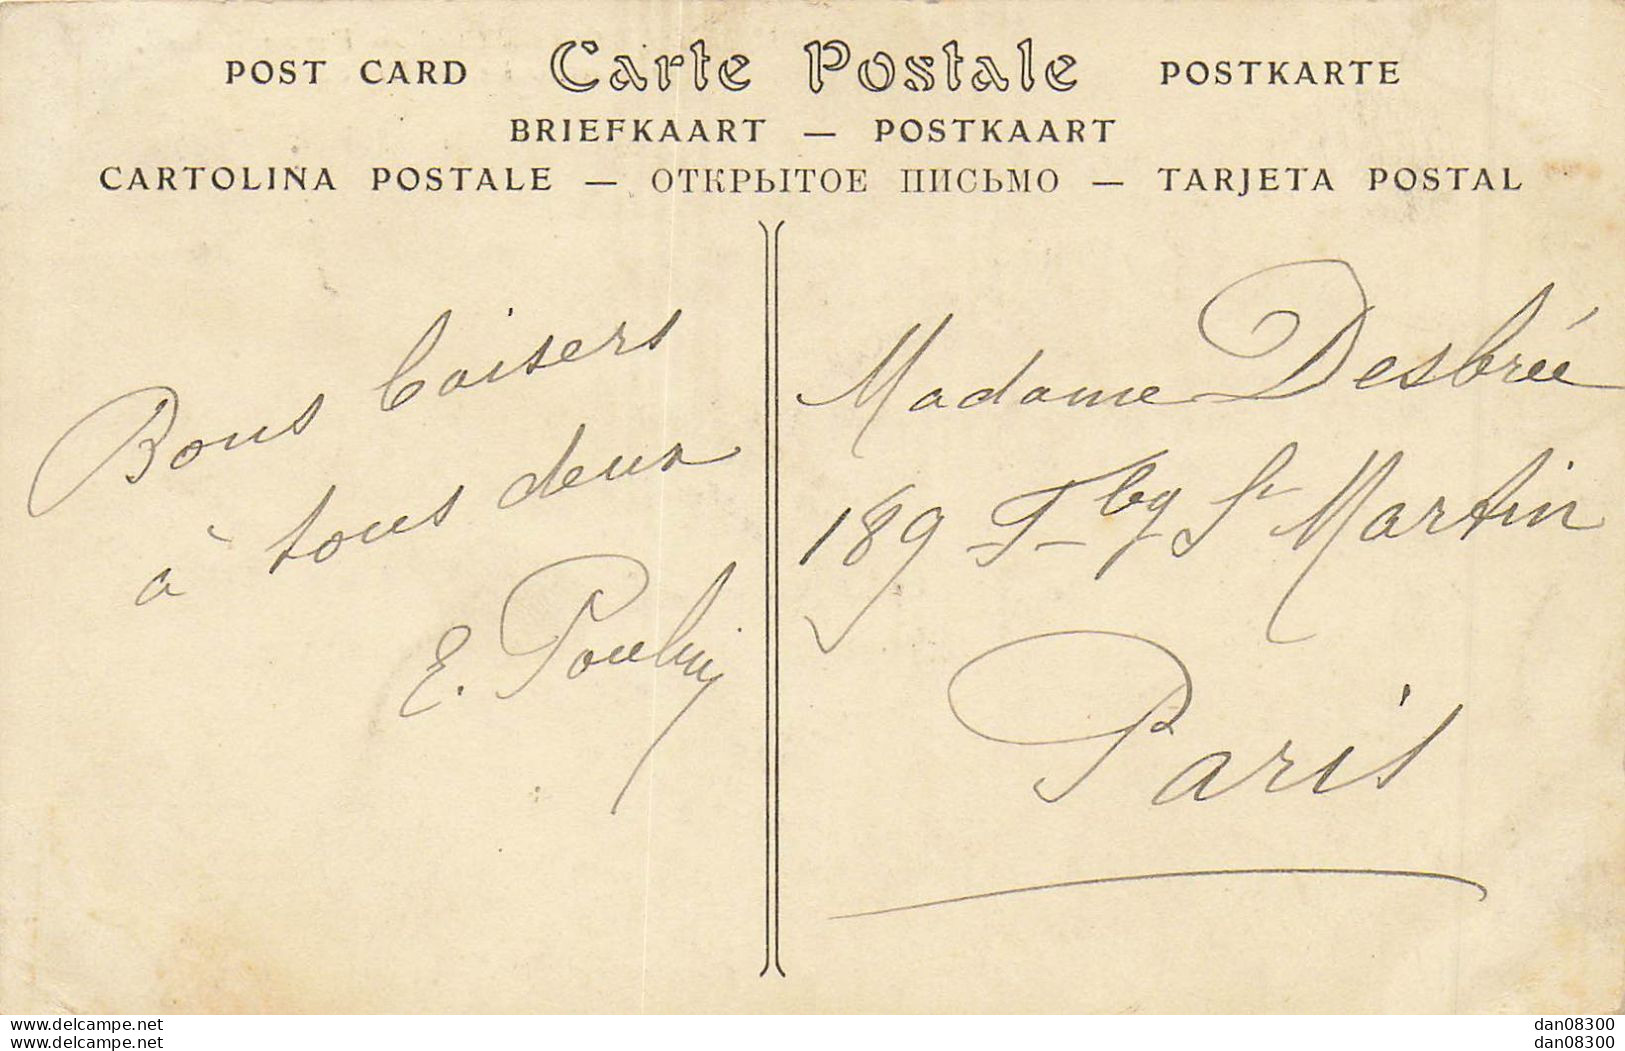 POST CARD Carte Postale POSTKARTE
BRIEFKAART — POSTKAART
CARTOLINA POSTALE — ОТКРЫТОЕ ПИСЬМО — TARJETA POSTAL
Bons baisers
à tous deux
E.
Madame Desbrée
189 Fbg St Martin
Paris
www.delcampe.net
www.delcampe.net
dan08300
dan08300